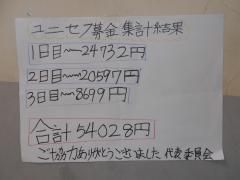 ユニセフ募金集計結果
1日目〜24732円
2日目〜20597円
3日目〜8699円
合計54028円
ご協力ありがとうございました 代表委員会